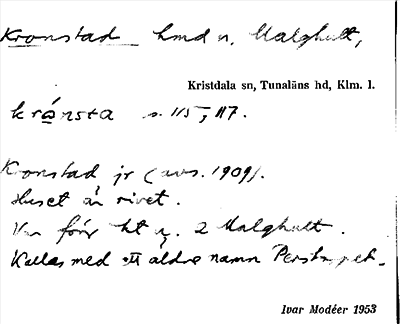 Kronstad hmd u. Malghult,
Kristdala sn, Tunaläns hd, Klm. l.
kránsta s. 115, 117.
Kronstad jr (avs. 1909).
Huset är rivet.
Var förr ht u. 2 Malghult.
Kallas med ett äldre namn
Ivar Modéer 1953